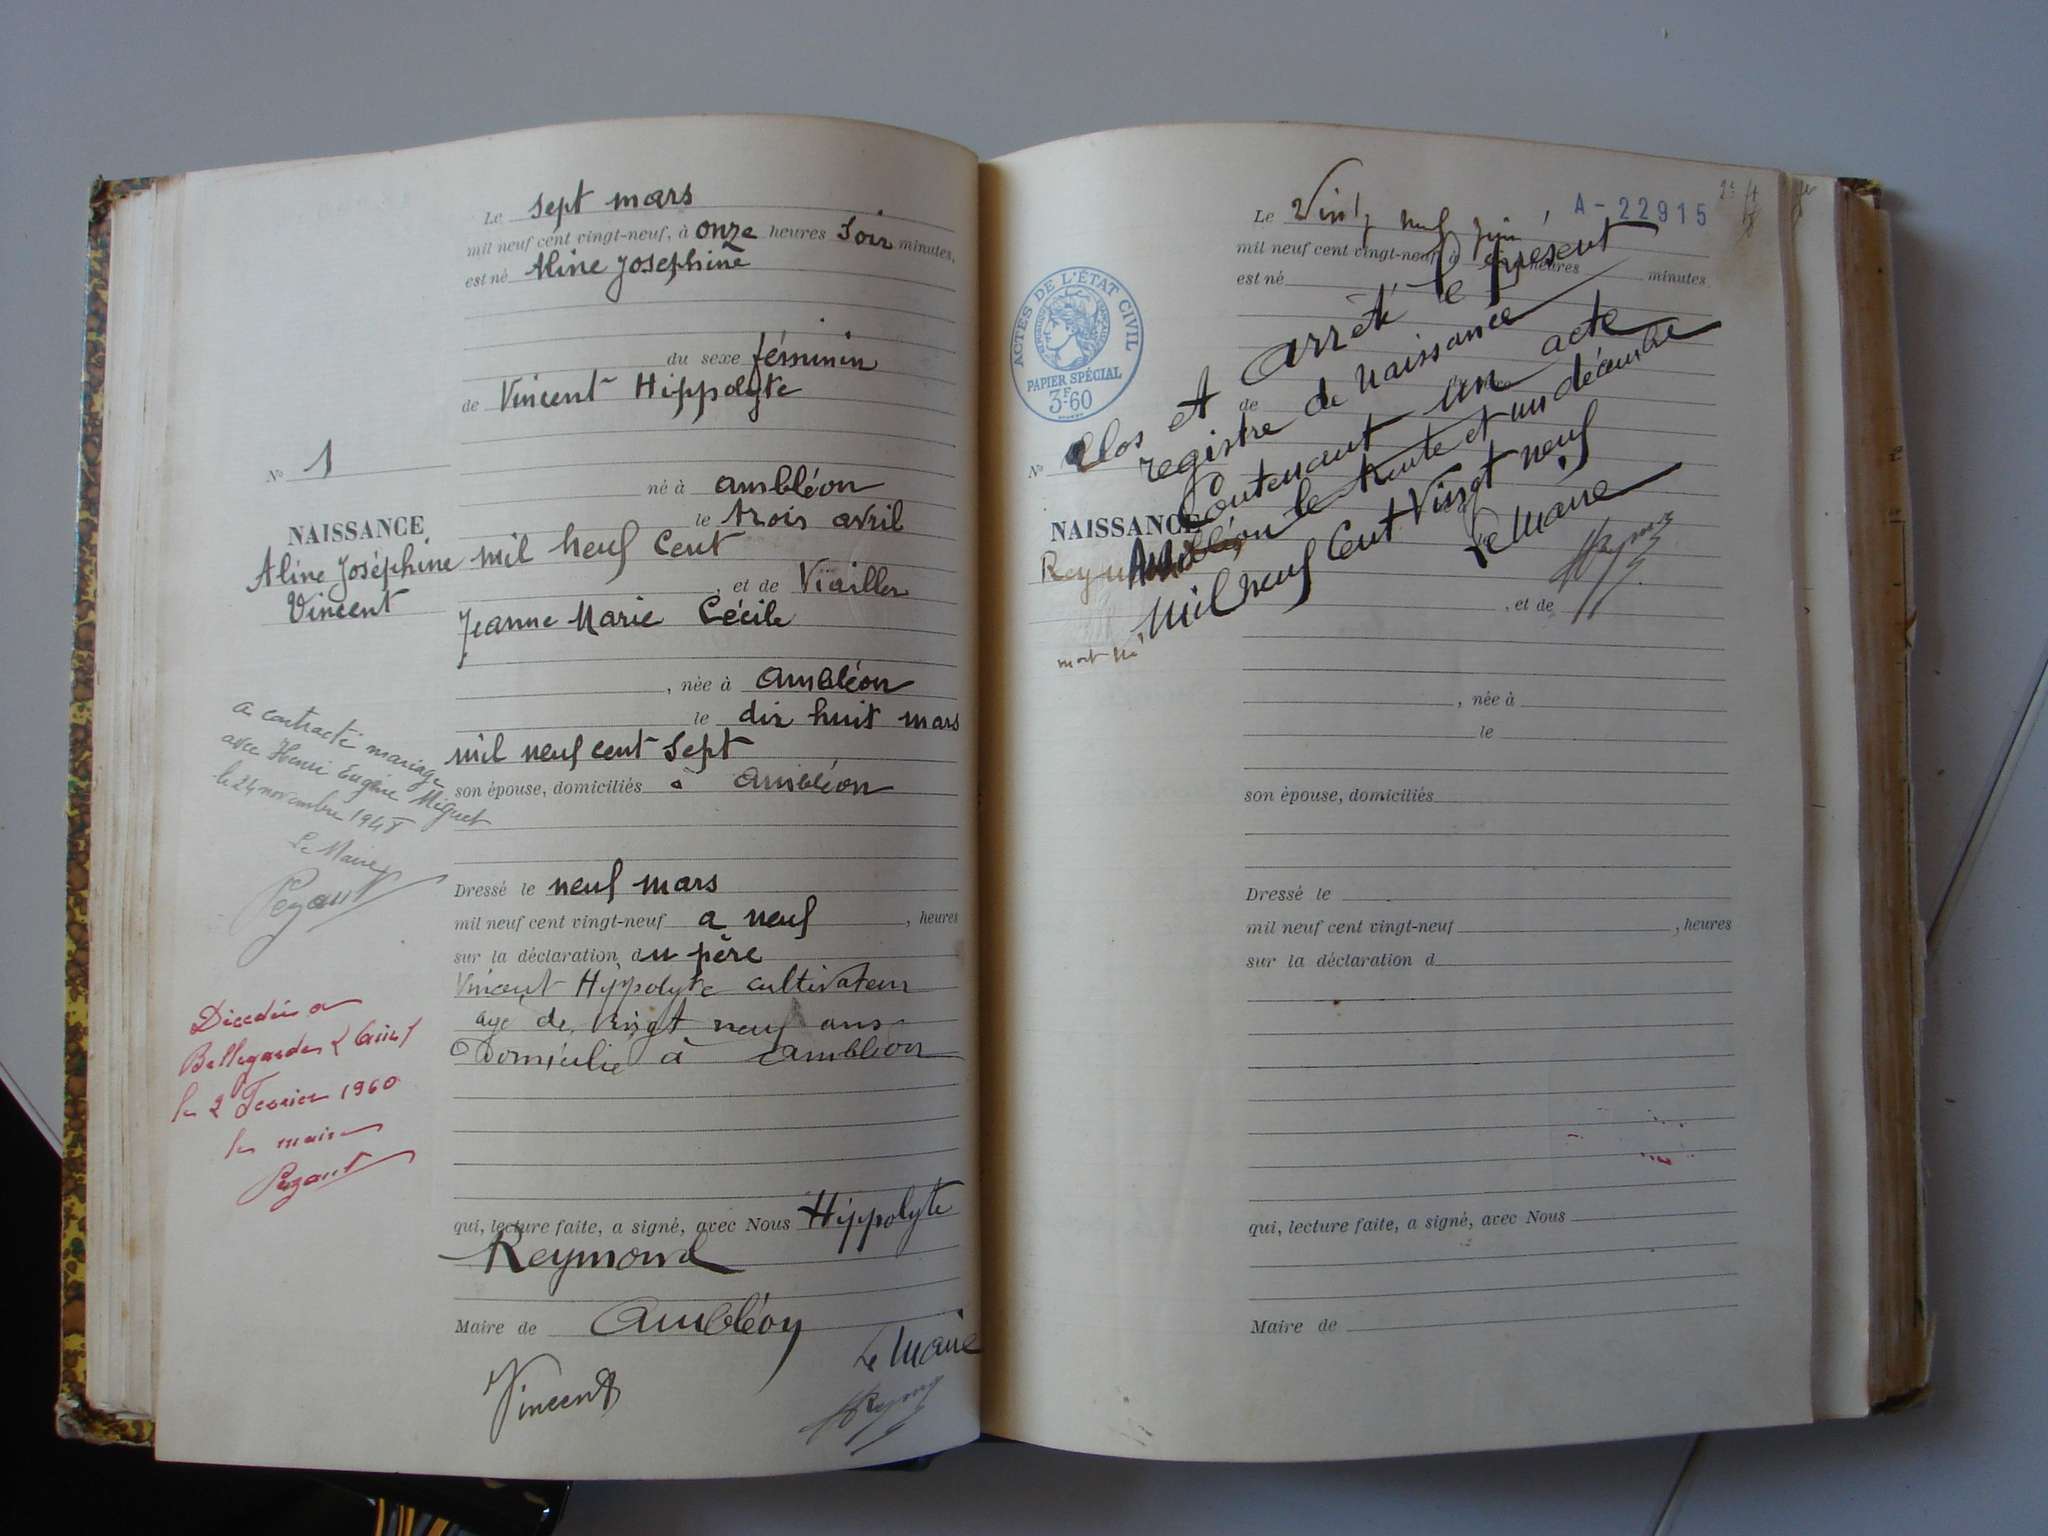 Le sept mars
mil neuf cent vingt-neuf, à onze heures soir minutes,
est né Aline Joséphine
du sexe féminin
de Vincent Hippolyte
né à Ambléon
le trois avril
mil neuf cent
, et de Viailler
Jeanne Marie Cécile
, née à Ambléon
le dix huit mars
mil neuf cent sept
son épouse, domiciliés à Ambléon
Dressé le neuf mars
mil neuf cent vingt-neuf a neuf , heures
sur la déclaration du père
Vincent Hippolyte cultivateur
age de vingt neuf ans
Domicilié à Ambléon
qui, lecture faite, a signé, avec Nous Hippolyte
Reymond
Maire de Ambléon
Vincent
Le Maire
No 1
NAISSANCE
Aline Joséphine
Vincent
a contracté mariage
avec Henri Eugène Miguet
le 24 novembre 1948
Le Maire
Décédée a
Bellegarde
le 2 Fevrier 1960
le maire
A-22915
Le Vingt neuf juin
mil neuf cent vingt-neuf à heures
minutes
est né
ACTES DE L'ÉTAT CIVIL
PAPIER SPÉCIAL
3F60
de
No
Clos et arrêté le présent
registre de naissance
Contenant un acte
Ambléon le trente et un décembre
Mil neuf Cent Vingt neuf
Le Maire
NAISSANCE
mort né
, et de
, née à
le
son épouse, domiciliés
Dressé le
mil neuf cent vingt-neuf , heures
sur la déclaration d
qui, lecture faite, a signé, avec Nous
Maire de